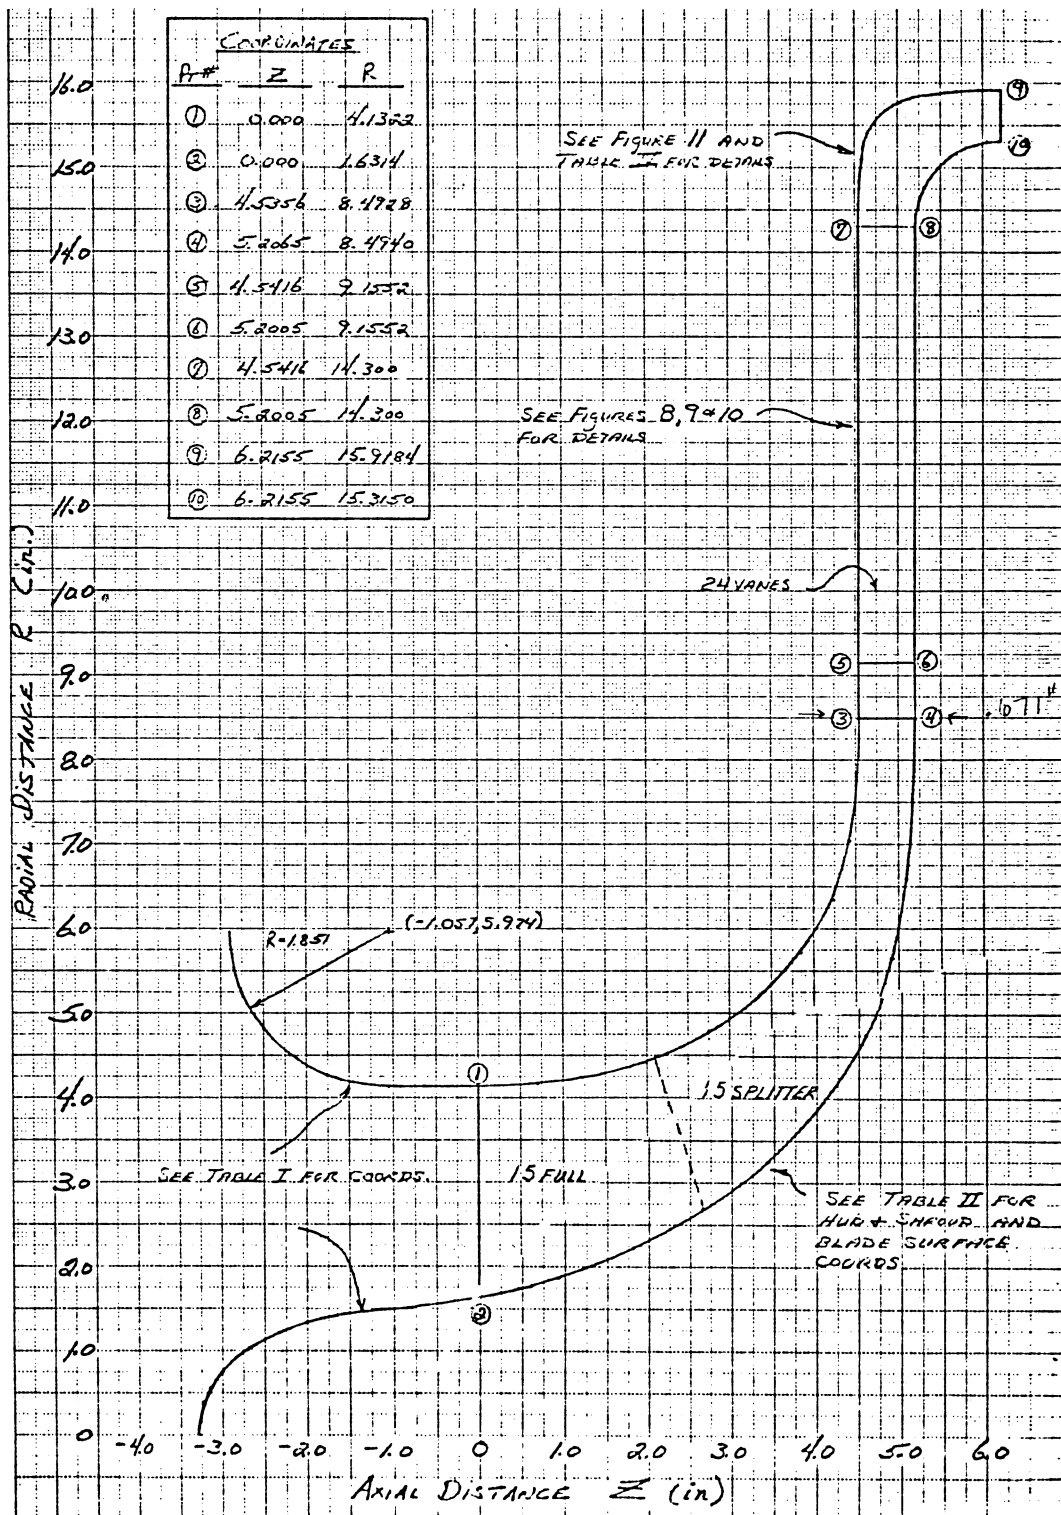 COORDINATES
Pt # Z R
① 0.000 4.1322
② 0.000 1.6314
③ 4.5356 8.4728
④ 5.2065 8.4940
⑤ 4.5416 9.1552
⑥ 5.2005 9.1552
⑦ 4.5416 14.300
⑧ 5.2005 14.300
⑨ 6.2155 15.9184
⑩ 6.2155 15.3150
16.0
15.0
14.0
13.0
12.0
11.0
10.0
9.0
8.0
7.0
6.0
5.0
4.0
3.0
2.0
1.0
0
RADIAL DISTANCE R (in.)
⑨
SEE FIGURE 11 AND
TABLE FOR DETAILS
⑩
⑦ ⑧
SEE FIGURES 8, 9 & 10
FOR DETAILS
24 VANES
⑤ ⑥
③ ④ .671"
(-1.057, 5.974)
R=1.857
①
15 SPLITTER
SEE TABLE I FOR COORDS.
15 FULL
SEE TABLE II FOR
HUB & SHROUD AND
BLADE SURFACE
COORDS.
②
-4.0 -3.0 -2.0 -1.0 0 1.0 2.0 3.0 4.0 5.0 6.0
AXIAL DISTANCE Z (in)